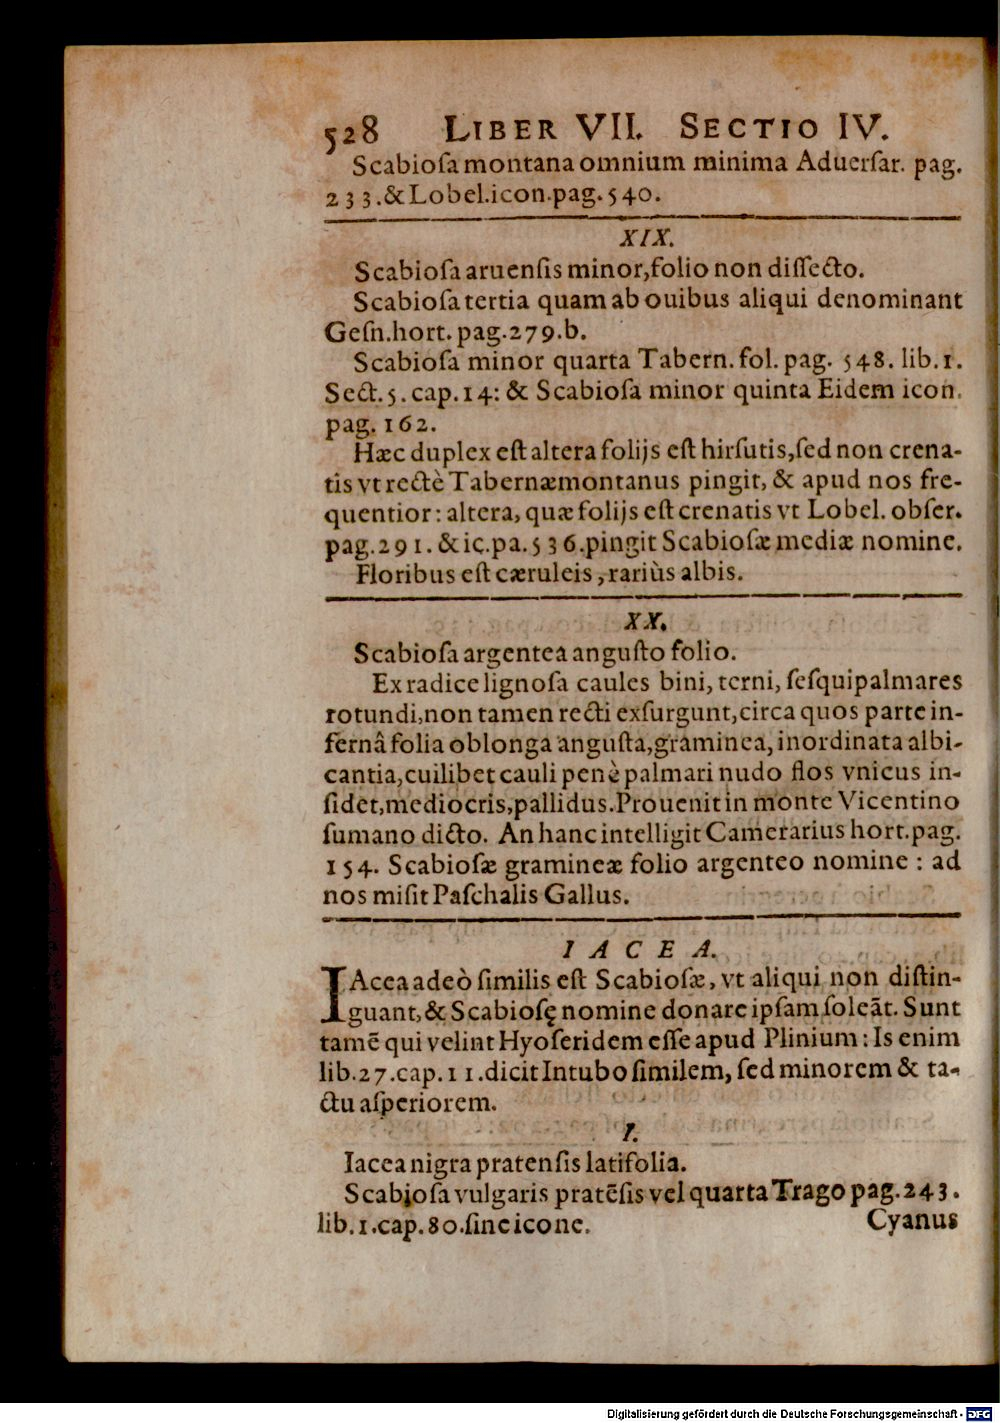 528 LIBER VII. SECTIO IV.
Scabioſa montana omnium minima Aduerſar. pag.
233. & Lobel. icon. pag. 540.
XIX.
Scabioſa aruenſis minor, folio non diſſecto.
Scabioſa tertia quam ab ouibus aliqui denominant
Geſn. hort. pag. 279. b.
Scabioſa minor quarta Tabern. fol. pag. 548. lib. 1.
Sect. 5. cap. 14: & Scabioſa minor quinta Eidem icon.
pag. 162.
Hæc duplex eſt altera folijs eſt hirſutis, ſed non crena-
tis vt rectè Tabernæmontanus pingit, & apud nos fre-
quentior: altera, quæ folijs eſt crenatis vt Lobel. obſer.
pag. 291. & ic. pa. 536. pingit Scabioſæ mediæ nomine.
Floribus eſt cæruleis, rariùs albis.
XX.
Scabioſa argentea anguſto folio.
Ex radice lignoſa caules bini, terni, ſeſquipalmares
rotundi, non tamen recti exſurgunt, circa quos parte in-
fernâ folia oblonga anguſta, graminea, inordinata albi-
cantia, cuilibet cauli penè palmari nudo flos vnicus in-
ſidet, mediocris, pallidus. Prouenit in monte Vicentino
ſumano dicto. An hanc intelligit Camerarius hort. pag.
154. Scabioſæ gramineæ folio argenteo nomine: ad
nos miſit Paſchalis Gallus.
IACEA.
IAcea adeò ſimilis eſt Scabioſæ, vt aliqui non diſtin-
guant, & Scabioſę nomine donare ipſam ſoleãt. Sunt
tamē qui velint Hyoſeridem eſſe apud Plinium: Is enim
lib. 27. cap. 11. dicit Intubo ſimilem, ſed minorem & ta-
ctu aſperiorem.
I.
Iacea nigra pratenſis latifolia.
Scabioſa vulgaris pratēſis vel quarta Trago pag. 243.
lib. 1. cap. 80. ſine icone.
Cyanus
Digitalisierung gefördert durch die Deutsche Forschungsgemeinschaft - DFG